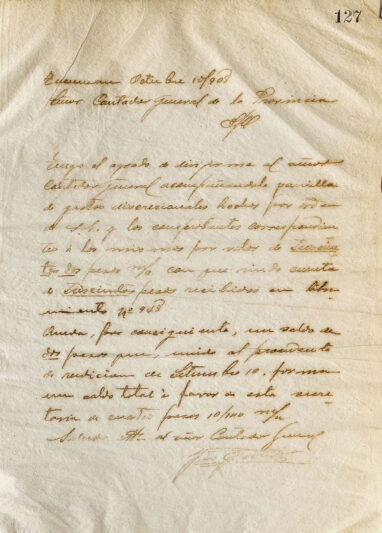 127
Tucuman Octubre 10/908
Señor Contador General de la Provincia
S/D
Tengo el agrado de dirijirme al señor
Contador General acompañandole planilla
de gastos discrecionales hechos por orden
de S.S. y los comprobantes correspondien
tes á los mismos por valor de
tos dos pesos m/n con que rindo cuenta
á pesos recibidos en libra
miento nº 948
Queda, por consiguiente, un saldo de
dos pesos que, unido al procedente
de rendicion de Setiembre 10, forma
un saldo total á favor de esta secre
taria de cuatro pesos 10/100 m/n
Saludo Att. al señor Contador General